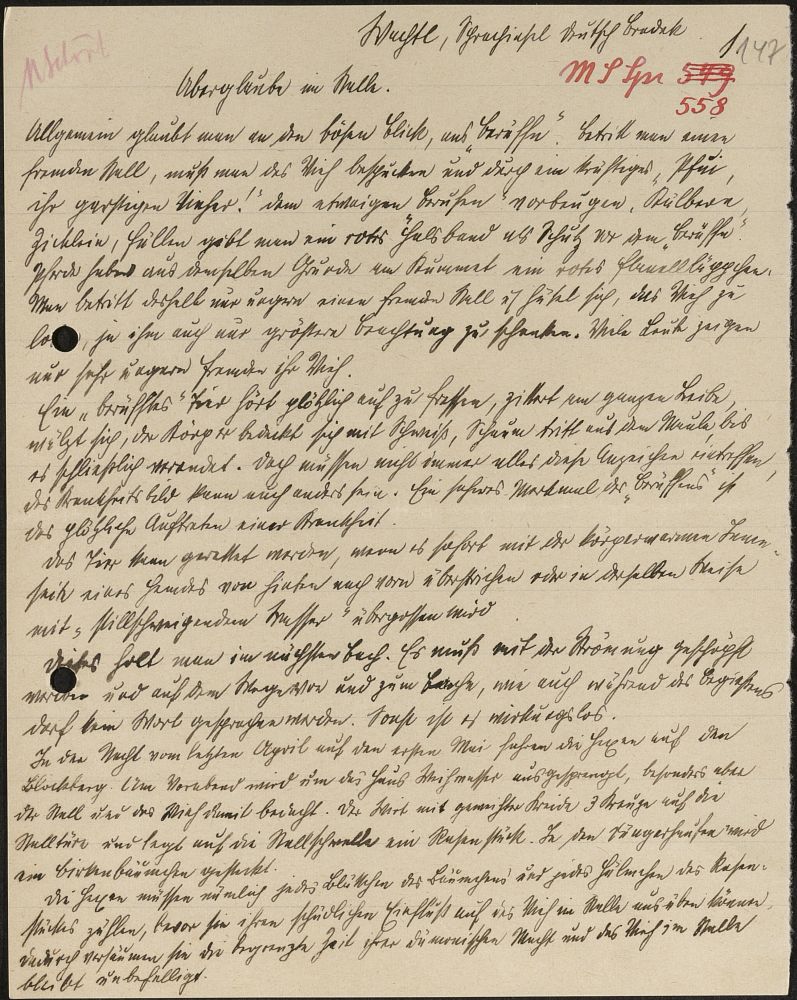 Wachtl, Sprachinsel Deutsch Brodek
1
147
MS Spr 549
558
Aberglaube im Stalle.
Allgemein glaubt man an den bösen Blick, ans „Berüffn". Betritt man einen
fremden Stall, muß man das Vieh bespucken und durch ein kräftiges „Pfui,
ihr garstigen Viecher!" dem etwaigen „Berufen" vorbeugen. Kälbern,
Zicklein, Füllen gibt man ein rotes Halsband als Schutz vor dem „Berüffn".
Pferde haben aus demselben Grunde am Kummet ein rotes Flanellläppchen.
Man betritt deshalb nur ungern einen fremden Stall u. hütet sich, das Vieh zu
ja ihm auch nur größere Beachtung zu schenken. Viele Leute zeigen
nur sehr ungern Fremden ihr Vieh.
Ein „berüfftes" Tier hört plötzlich auf zu fressen, zittert am ganzen Leibe,
wälzt sich, der Körper bedeckt sich mit Schweiß, Schaum tritt aus dem Maule, bis
es schließlich verendet. Doch müssen nicht immer alle diese Anzeichen eintreffen,
das Krankheitsbild kann auch anders sein. Ein sicheres Merkmal des „Berüffens" ist
das plötzliche Auftreten einer Krankheit.
Das Tier kann gerettet werden, wenn es sofort mit der körperwarmen Innen-
seite eines Hemdes von hinten nach vorn überstrichen oder in derselben Weise
mit „stillschweigendem Wasser" übergossen wird.
Dieses holt man im nächsten Bach. Es muß mit der Strömung geschöpft
werden und auf dem Wege von und zum Bache, wie auch während des Begießens
darf kein Wort gesprochen werden. Sonst ist es wirkungslos.
In der Nacht vom letzten April auf den ersten Mai fahren die Hexen auf den
Blocksberg. Am Vorabend wird um das Haus Weihwasser ausgesprengt, besonders aber
der Stall und das Vieh damit bedacht. Der Wirt mit geweihter Kreide 3 Kreuze auf die
Stalltüre und legt auf die Stallschwelle ein Rasenstück. In den Düngerhaufen wird
ein Birkenbäumchen gesteckt.
Die Hexen müssen nämlich jedes Blättchen des Bäumchens und jedes Hälmchen des Rasen-
stückes zählen, bevor sie ihren schädlichen Einfluß auf das Vieh im Stalle ausüben können,
dadurch versäumen sie die begrenzte Zeit ihrer dämonischen Macht und das Vieh im Stalle
bleibt unbehelligt.